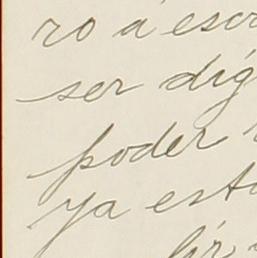 ro á escr
ser dig
poder
ya est
lir